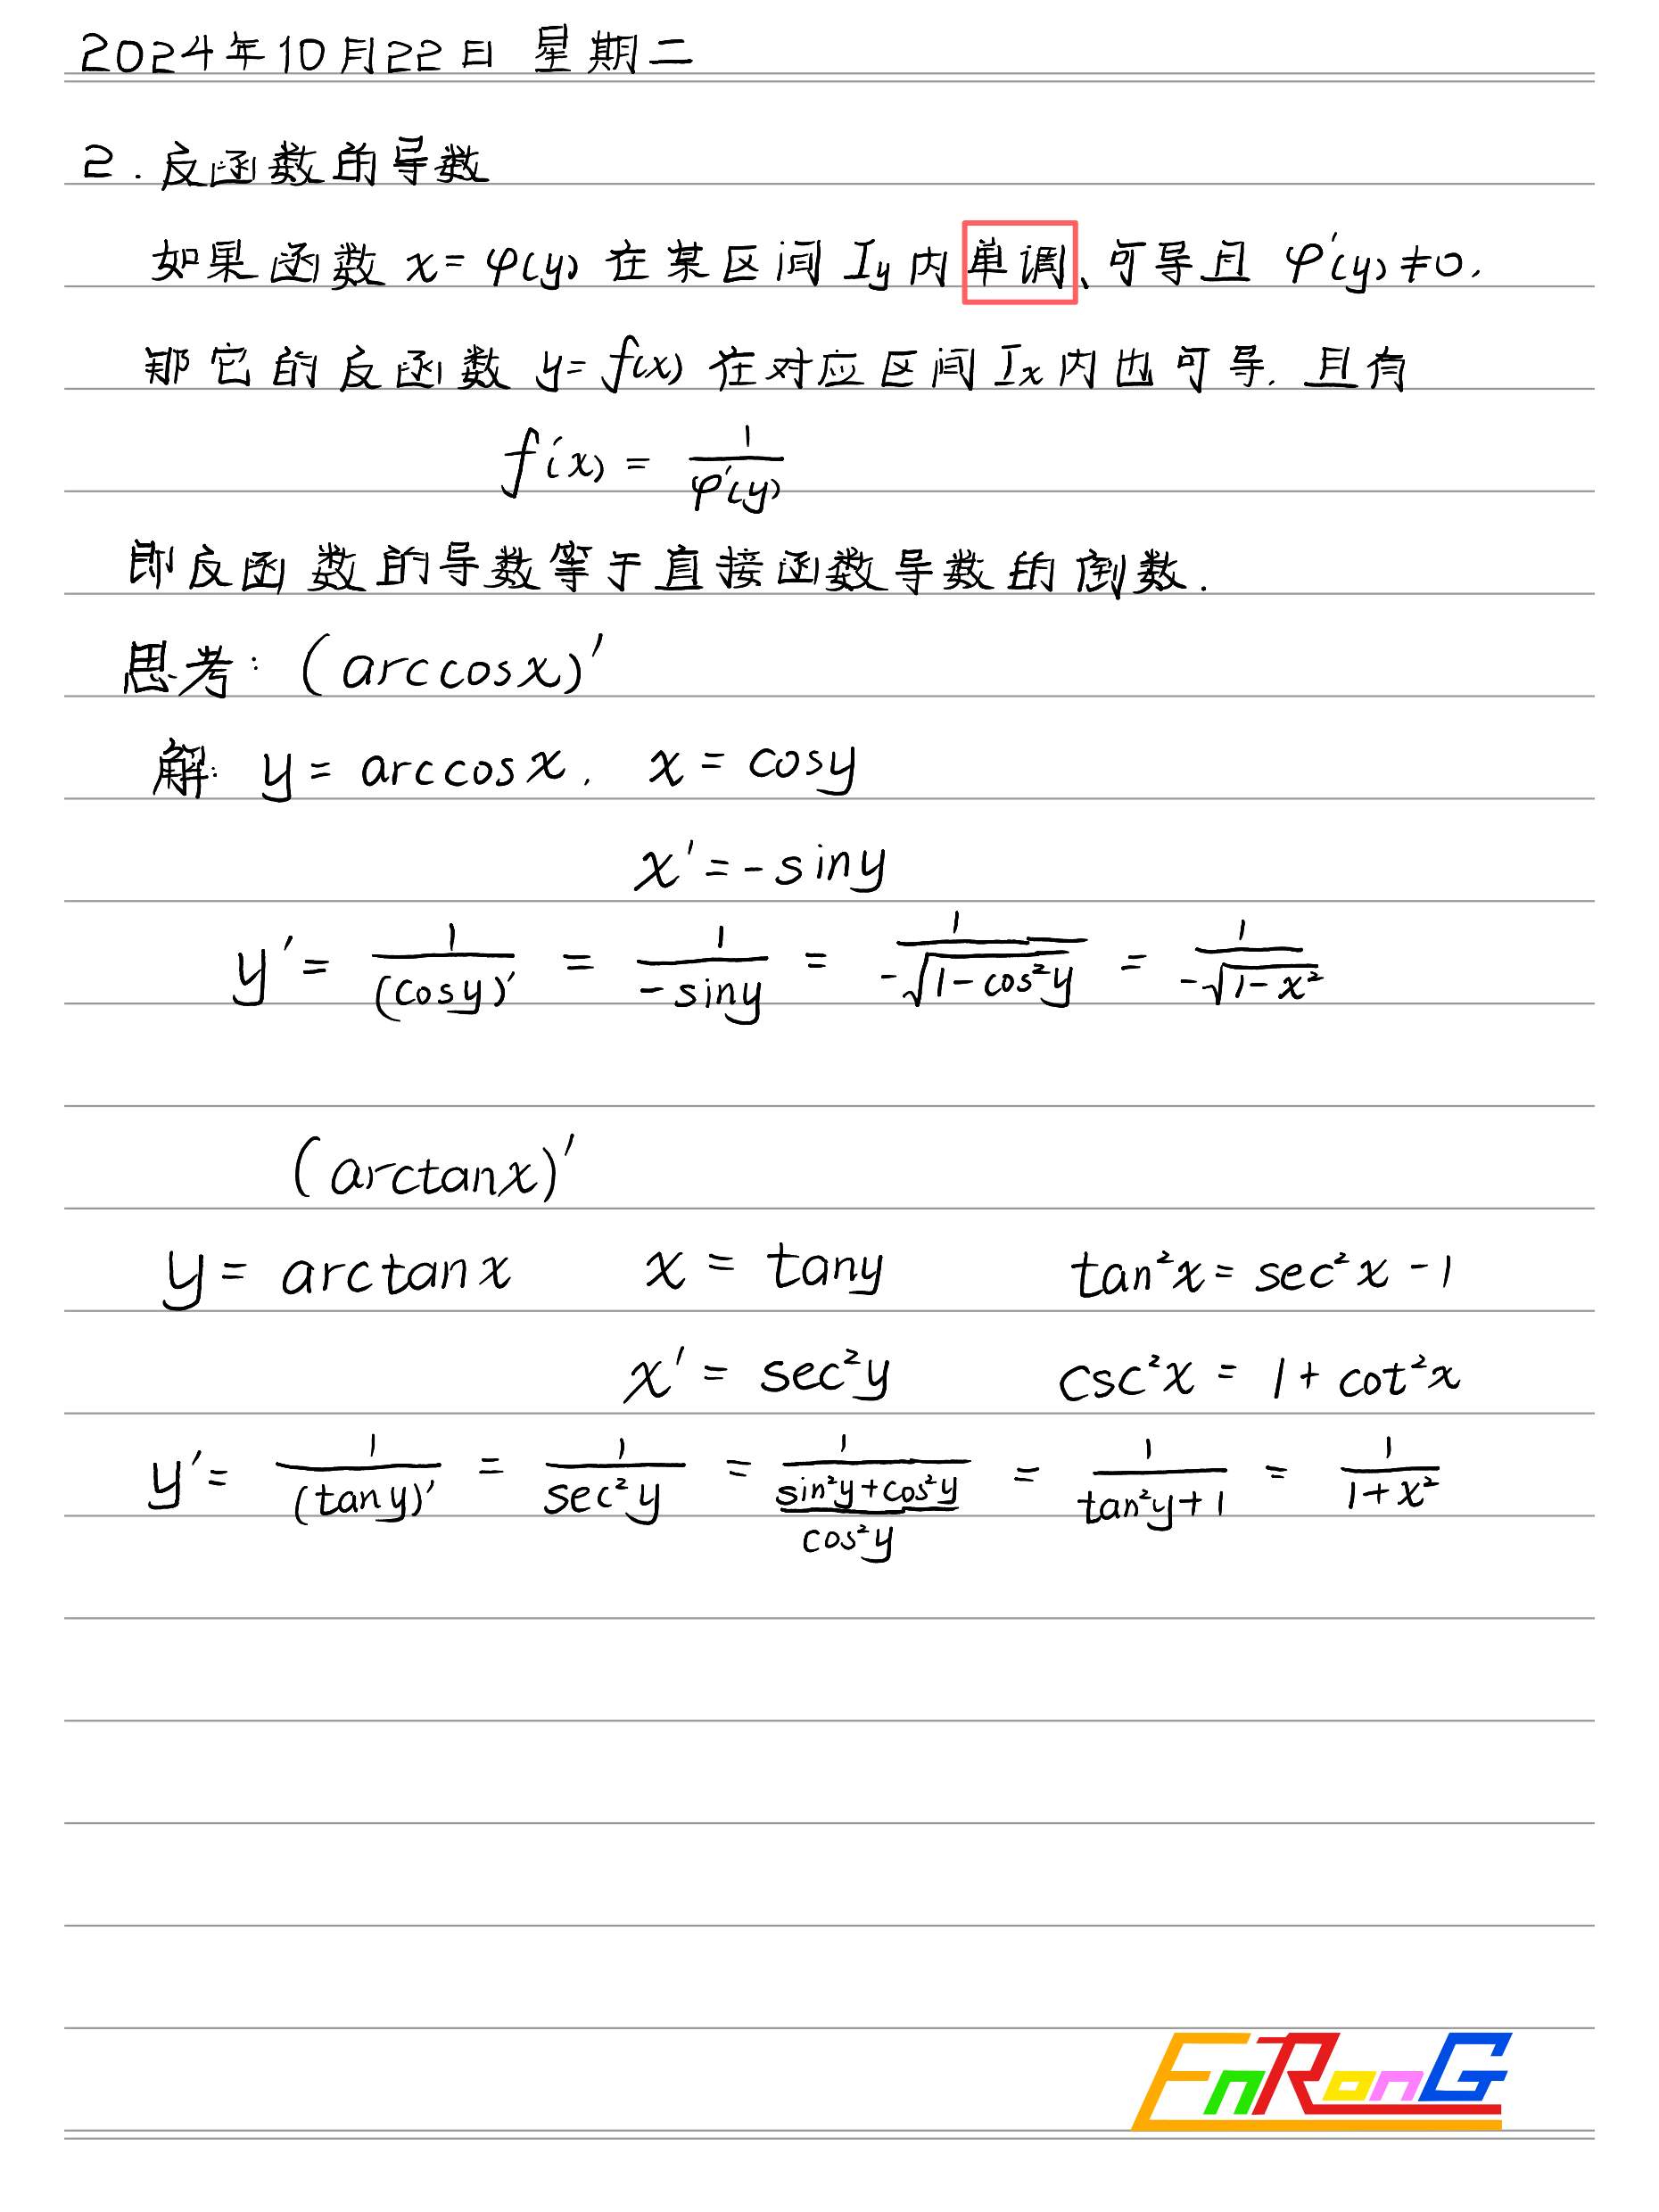 2024年10月22日 星期二
2. 反函数的导数
如果函数 x = φ(y) 在某区间 Iy 内单调、可导且 φ'(y) ≠ 0,
那它的反函数 y = f(x) 在对应区间 Ix 内也可导. 且有
f'(x) = 1/φ'(y)
即反函数的导数等于直接函数导数的倒数.
思考: (arccosx)'
解: y = arccosx. x = cosy
x' = -siny
y' = 1/(cosy)' = 1/-siny = 1/-√(1-cos²y) = 1/-√(1-x²)
(arctanx)'
y = arctanx x = tany tan²x = sec²x - 1
x' = sec²y csc²x = 1 + cot²x
y' = 1/(tany)' = 1/sec²y = 1/((sin²y+cos²y)/cos²y) = 1/(tan²y+1) = 1/(1+x²)
EnRonG